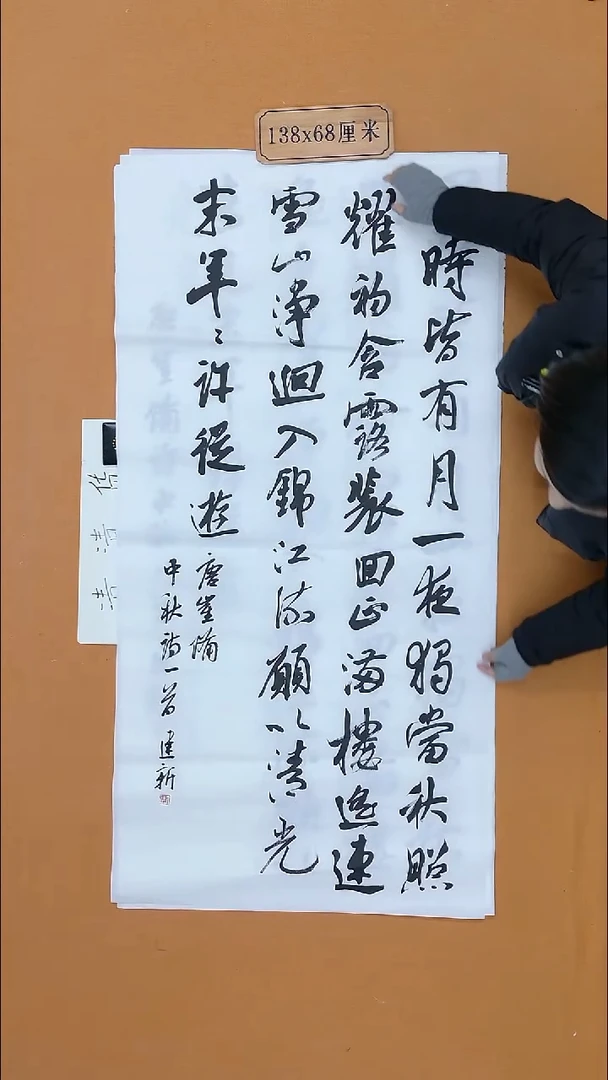 138x68厘米
時皆有月一夜獨當秋照
耀初含露裴回正滿樓遥連
雪山净迴入錦江流願以清光
末年〻許從遊
唐崔備
中秋詩一首 建新